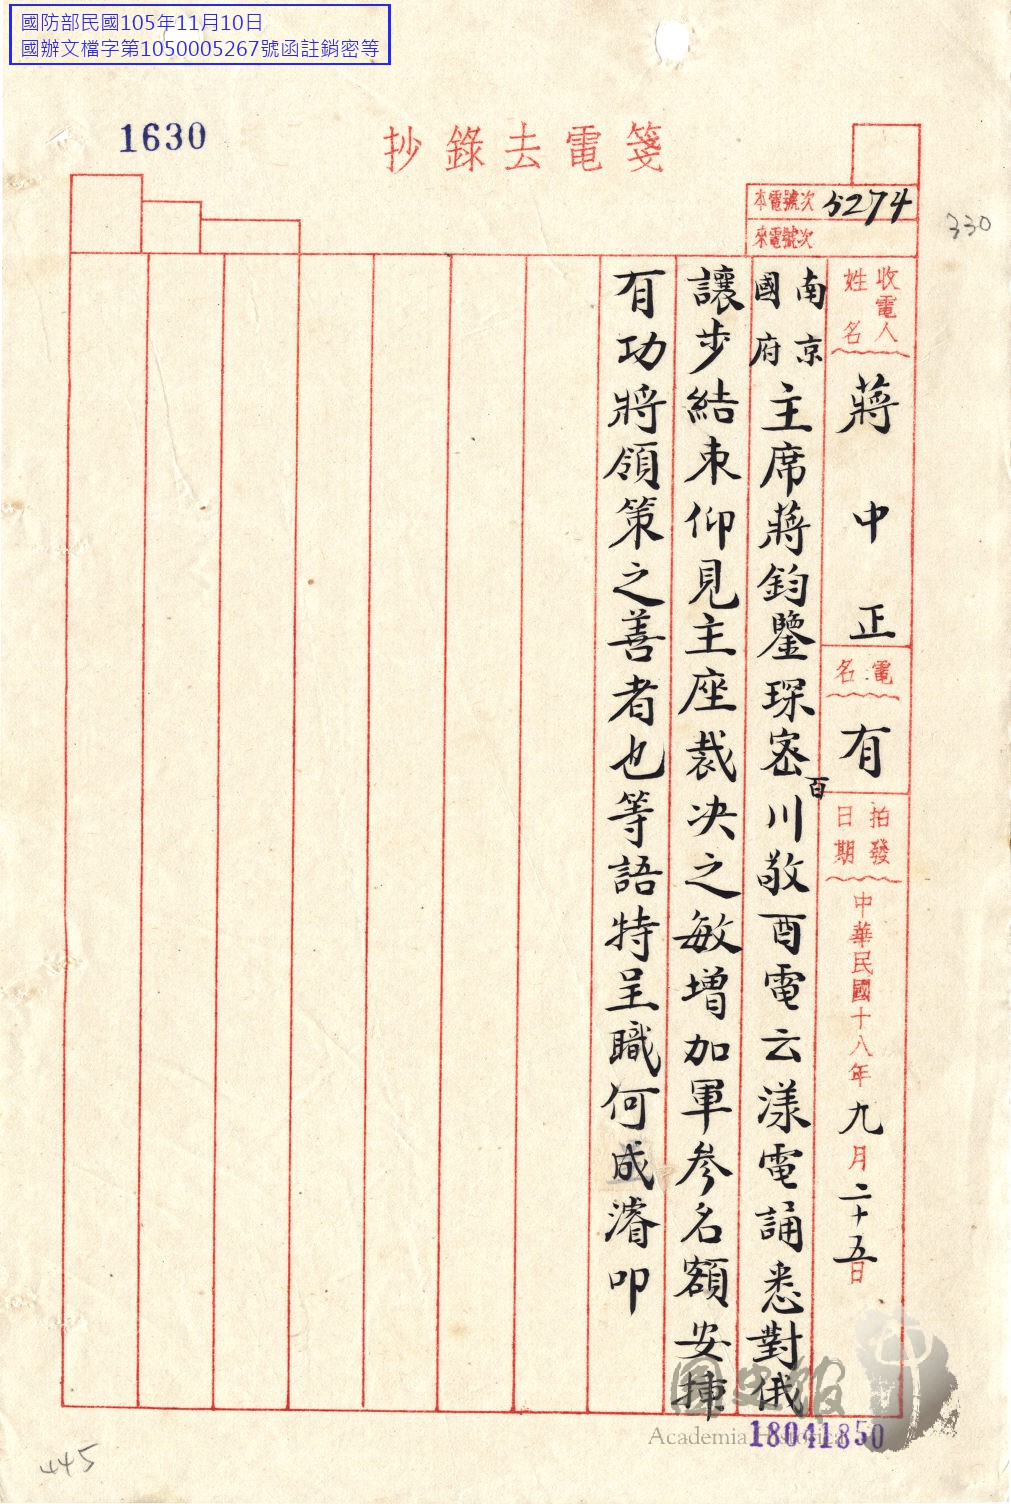 國防部民國105年11月10日
國辦文檔字第1050005267號函註銷密等
1630
抄錄去電箋
本電號次 5274
來電號次
330
收電人姓名 蔣中正 電名 有 拍發日期 中華民國十八年九月二十五日
南京國府主席蔣鈞鑒琛密百川敬酉電云漾電誦悉對俄
讓步結束仰見主座裁決之敏增加軍參名額安揷
有功將領策之善者也等語特呈職何成濬叩
國史館
Academia Historica
18041850
445